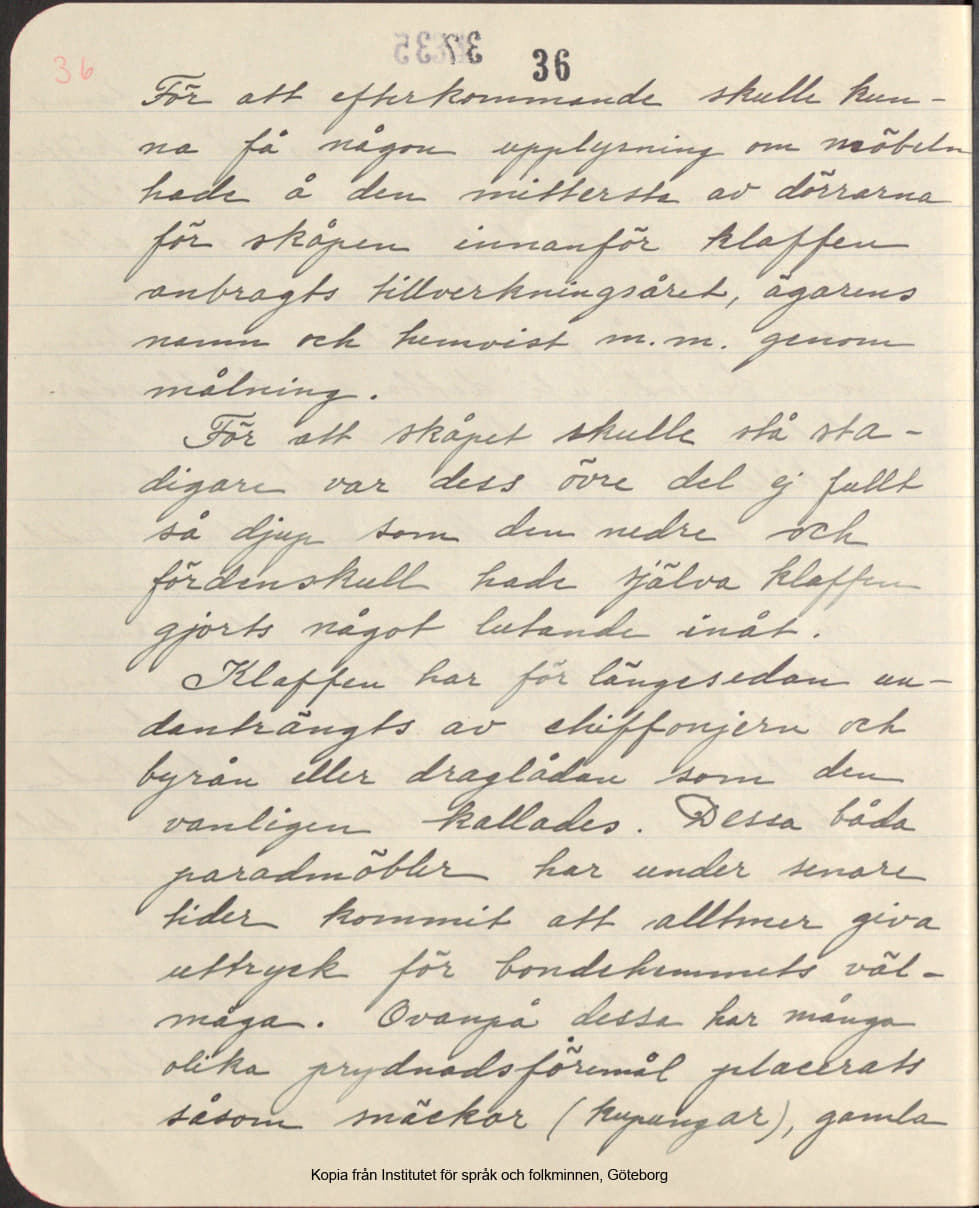 36
36
För att efterkommande skulle kun-
na få någon upplysning om möbeln
hade å den mittersta av dörrarna
för skåpen innanför klaffen
anbragts tillverkningsåret, ägarens
namn och hemvist m.m. genom
målning.
För att skåpet skulle stå sta-
digare var dess övre del ej fullt
så djup som den nedre och
fördenskull hade själva klaffen
gjorts något lutande inåt.
Klaffen har för längesedan un-
danträngts av chiffonjern och
byrån eller draglådan som den
vanligen kallades. Dessa båda
paradmöbler har under senare
tider kommit att alltmer giva
uttryck för bondehemmets väl-
måga. Ovanpå dessa har många
olika prydnadsföremål placerats
såsom snäckor (kupungar), gamla
Kopia från Institutet för språk och folkminnen, Göteborg